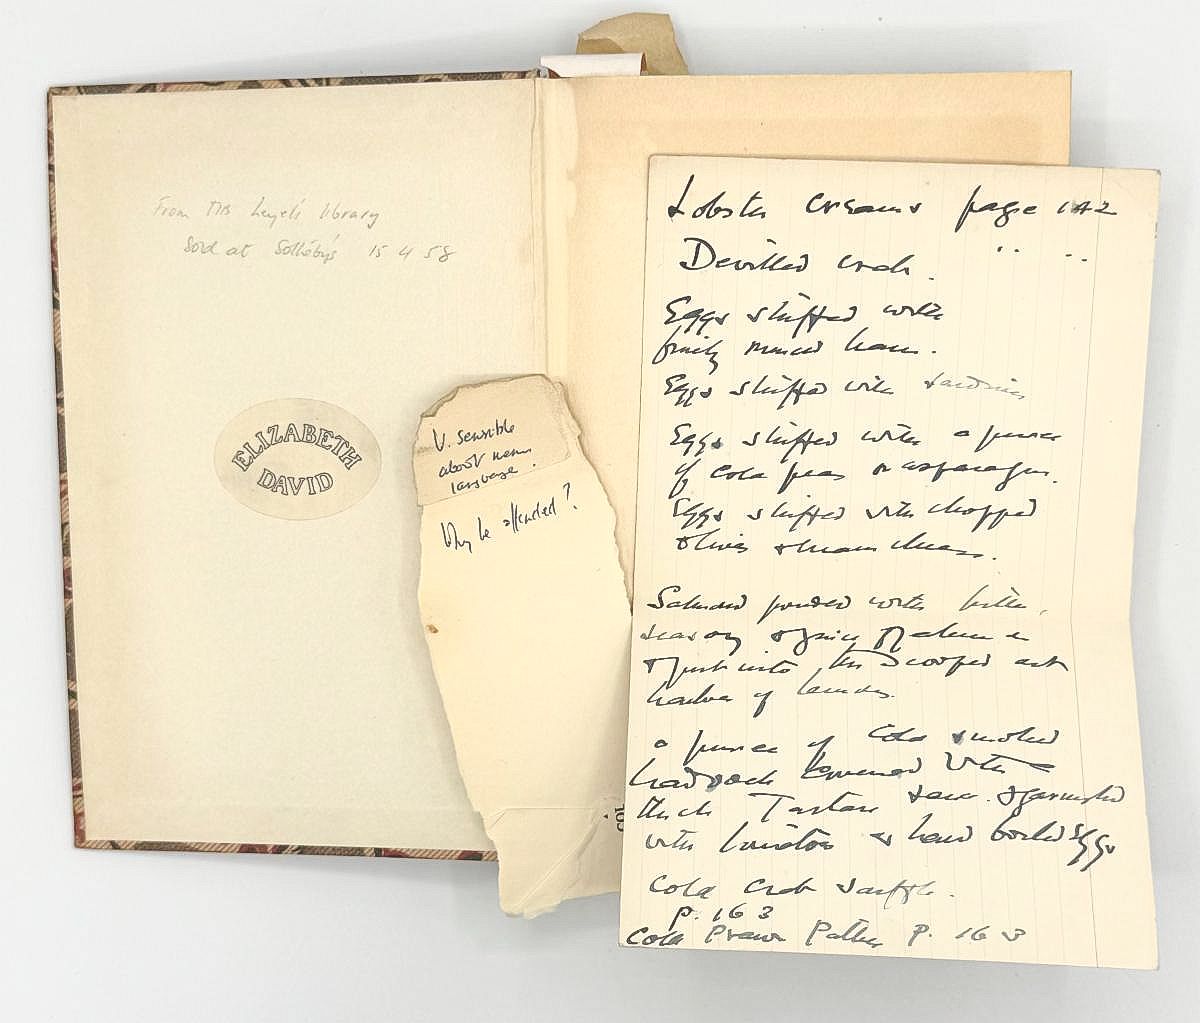 From Mrs Leyel's library
Sold at Sotheby's 15 4 58
ELIZABETH
DAVID
V. sensible
about menu
language.
Why be offended?
Lobster creams page 142
Devilled crab. " "
Eggs stuffed with
finely minced ham.
Eggs stuffed with sardines
Eggs stuffed with a puree
of cold peas or asparagus.
Eggs stuffed with chopped
olives & cream cheese.
Salmon pounded with butter,
season
& put into the scooped out
halves of lemons.
a puree of cold smoked
haddock covered with
thick Tartare sauce & garnished
with tomatoes & hard boiled eggs
Cold Crab souffle.
p. 163
Cold Prawn Patties p. 163